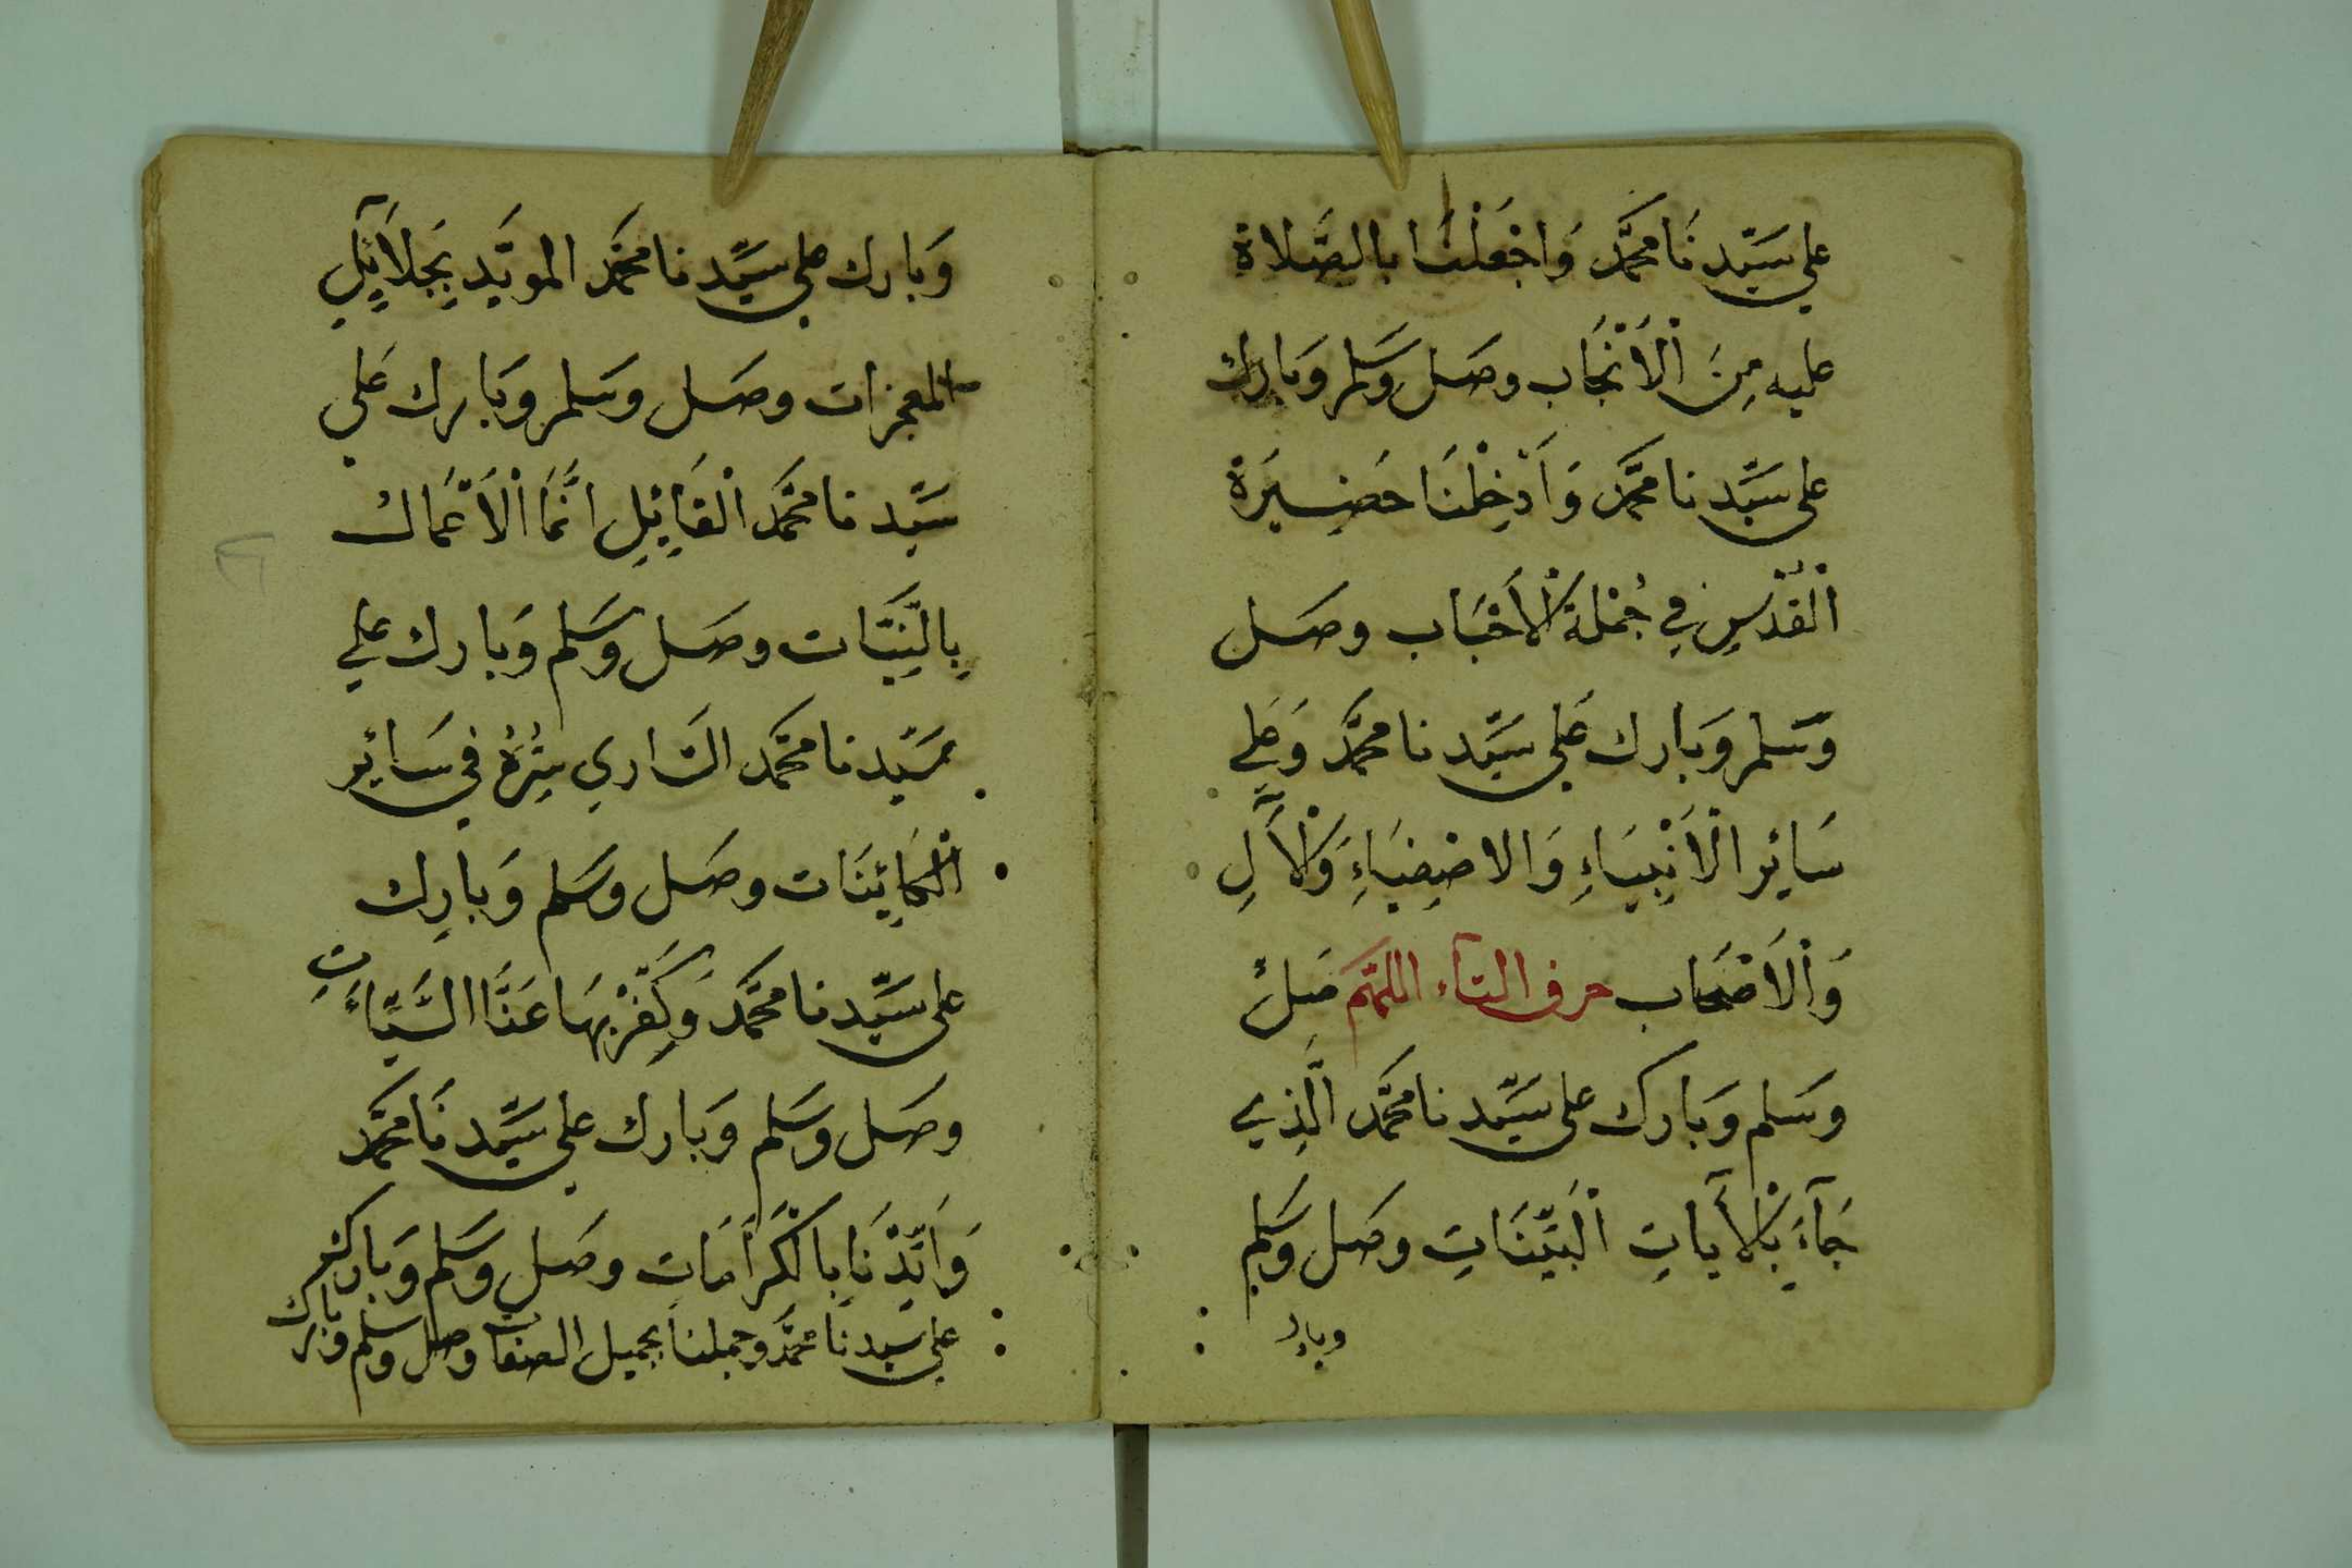 علي سَيّدِنَا مُحَمَّد وَاجْعَلْنَا بالصَّلاة
عليه مِنَ الْأَنْجَاب وصَل وَسَلم وَبَارك
على سَيّدِنا مُحَمَّد وَأَدْخِلْنَا حَضِيرَة
الْقُدْسِ فِي جُمْلَةِ الْأَحْبَاب وصَل
وَسَلم وَبَارك عَلى سَيّدِنا مُحَمَّد وَعَلي
سَائِر الْأَنْبِيَاءِ وَالاصْفِيَاءِ وَالْآلِ
وَالْأَصْحَاب حرف التآء اللهُمَّ صَلِّ
وَسَلم وَبَارك على سَيّدِنا مُحَمَّد الَّذِي
جَآءَ بِالْآيَاتِ الْبَيِّنَاتِ وصَل وَسَلم
وبارك
وَبَارك على سَيّدِنا مُحَمَّد المويَّدِ بِجَلَآئِلِ
المعجزات وصَل وسَلم وَبَارك عَلى
سَيّدِنا مُحَمَّد الْقَائِلِ انَّمَا الْأَعْمَال
بِالنِّيَّات وصَل وَسَلم وَبَارك علي
سَيّدِنا مُحَمَّد السَّاري سِرُّهُ في سَائِر
الْكَائِنَات وصَل وسَلم وَبَارِك
على سَيّدِنا مُحَمَّد وَكَفِّرْ بِهَا عَنَّا السَّيِّاءَتِ
وصَل وَسَلم وَبَارك على سَيّدِنَا مُحَمَّد
وَأَيِّدْنَا بِالْكَرَامَات وصَل وَسَلم وَبَارك
على سيدنا محمَّد وجملنا بجميل الصفات وصل وسلم وبارك